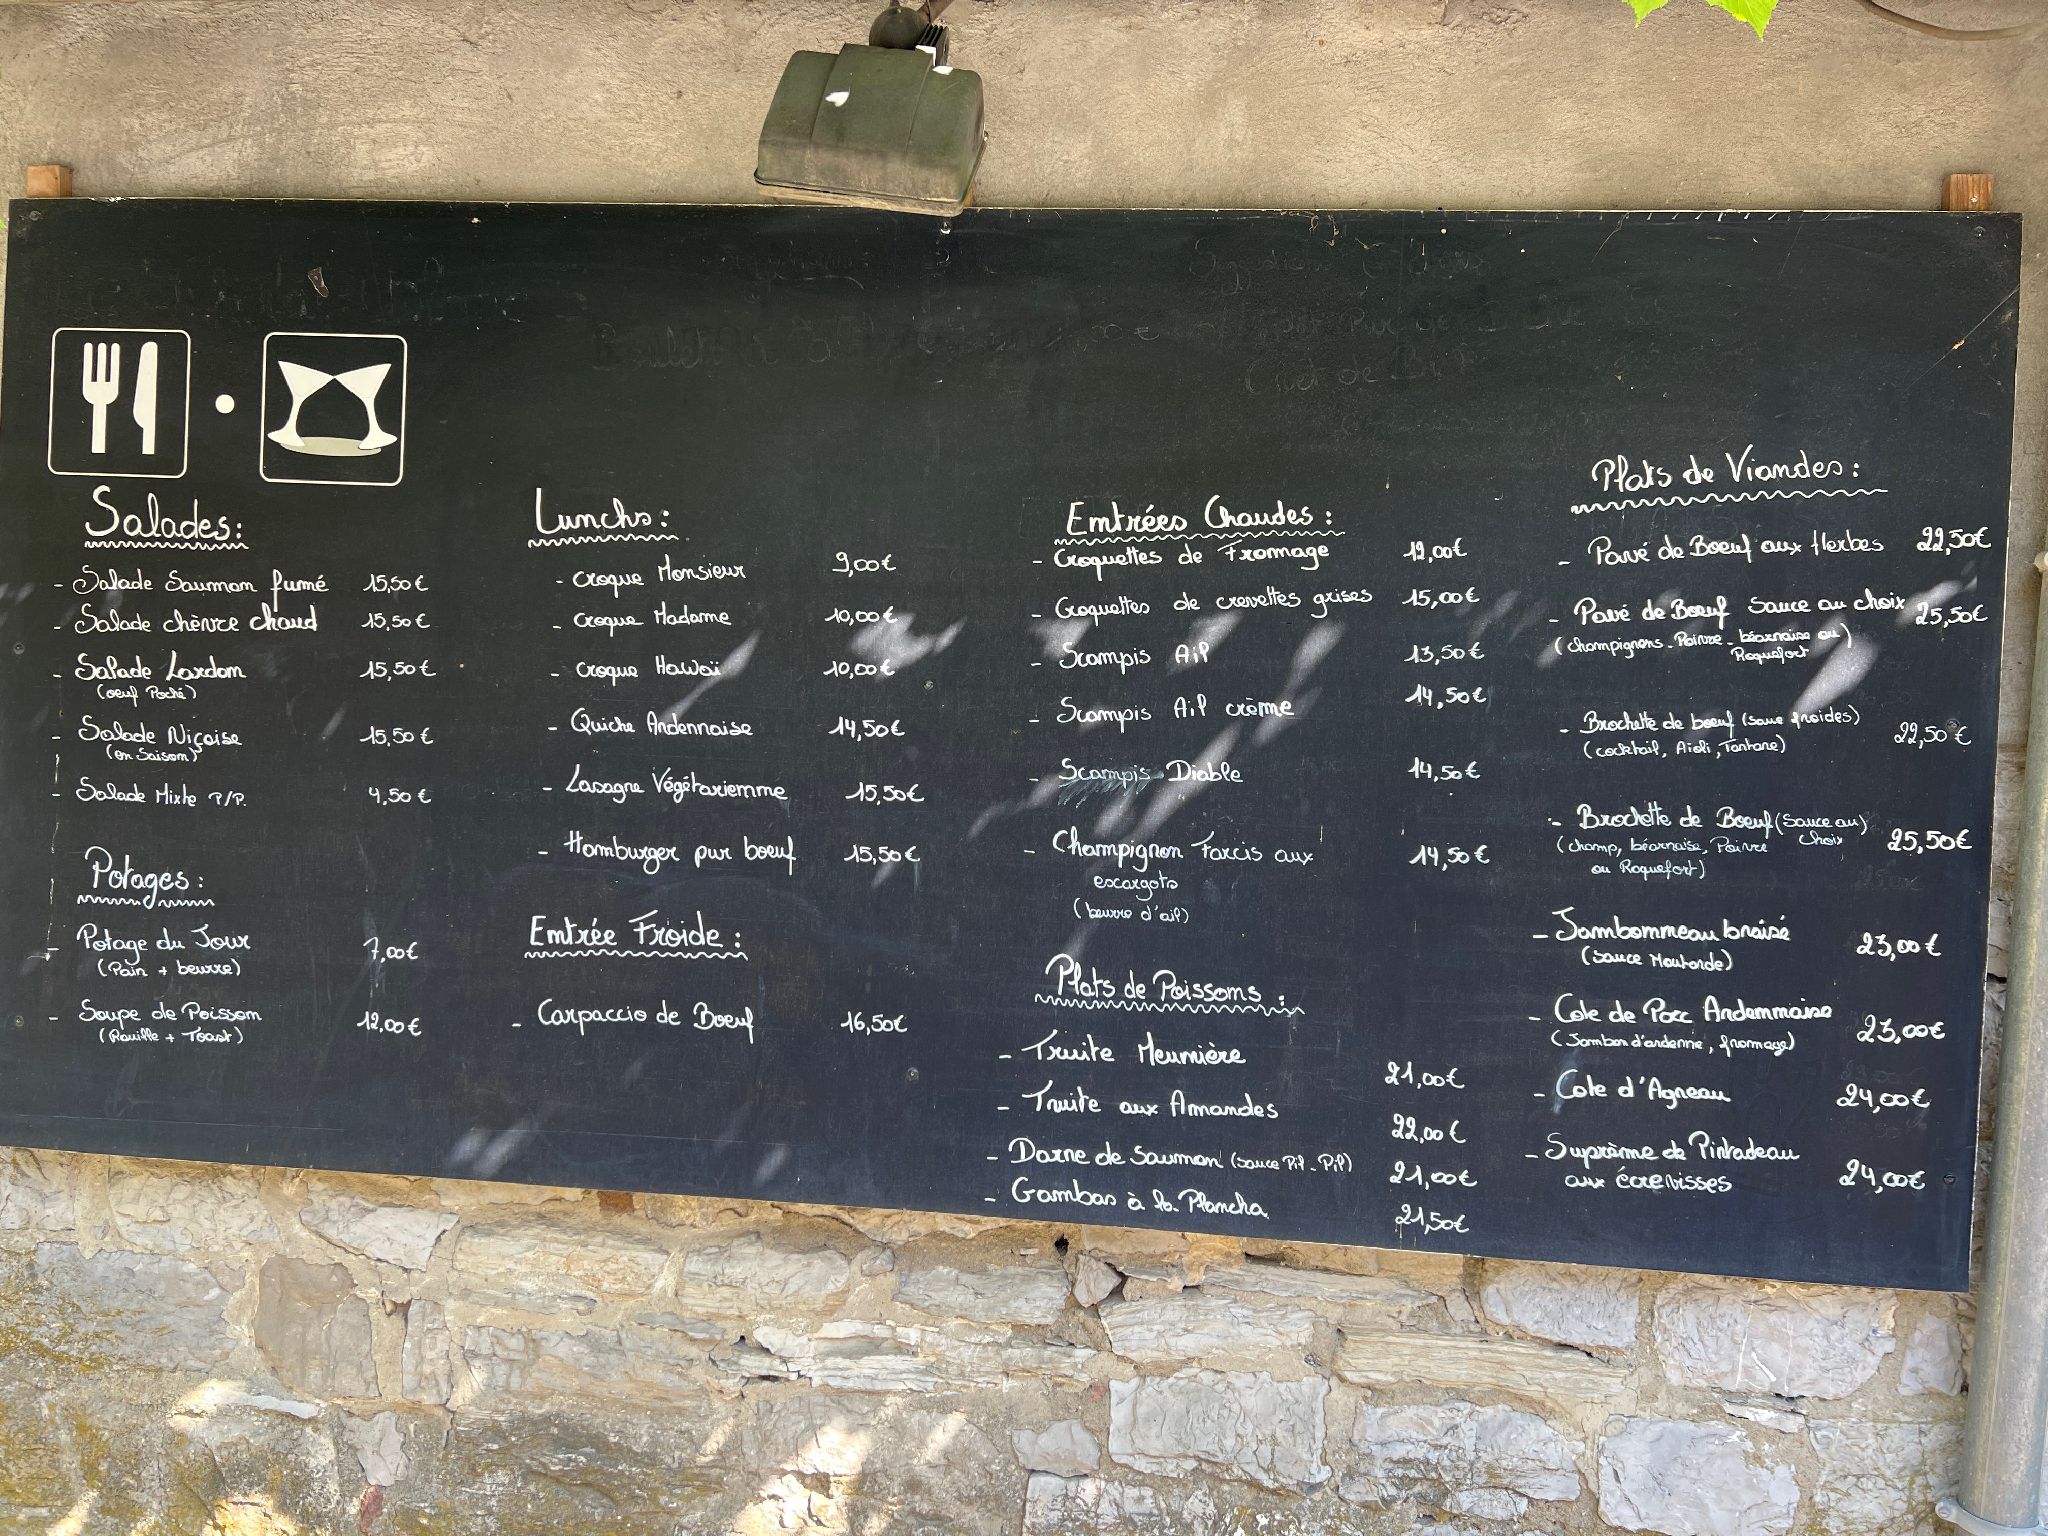 Salades:
- Salade Saumon fumé 15,50€
- Salade chèvre chaud 15,50€
- Salade Lardon 15,50€
(oeuf Poché)
- Salade Niçoise 15,50€
(en Saison)
- Salade Mixte P/P. 4,50€
Potages:
- Potage du Jour 7,00€
(Pain + beurre)
- Soupe de Poisson 12,00€
(Rouille + Toast)
Lunchs:
- Croque Monsieur 9,00€
- Croque Madame 10,00€
- Croque Hawaï 10,00€
- Quiche Ardennaise 14,50€
- Lasagne Végétarienne 15,50€
- Hamburger pur boeuf 15,50€
Entrée Froide:
- Carpaccio de Boeuf 16,50€
Entrées Chaudes:
- Croquettes de Fromage 12,00€
- Croquettes de crevettes grises 15,00€
- Scampis Ail 13,50€
- Scampis Ail crème 14,50€
- Scampis Diable 14,50€
- Champignon Farcis aux 14,50€
escargots
(beurre d'ail)
Plats de Poissons:
- Truite Meunière 21,00€
- Truite aux Amandes 22,00€
- Darne de Saumon (sauce Pil-Pil) 21,00€
- Gambas à la Plancha 21,50€
Plats de Viandes:
- Pavé de Boeuf aux Herbes 22,50€
- Pavé de Boeuf Sauce au choix 25,50€
(champignons-Poivre-béarnaise ou
Roquefort)
- Brochette de boeuf (sauce froides) 22,50€
(cocktail, Aioli, Tartare)
- Brochette de Boeuf (Sauce au 25,50€
Choix)
(champ, béarnaise, Poivre
ou Roquefort)
- Jambonneau braisé 23,00€
(sauce Moutarde)
- Cote de Porc Ardennaise 23,00€
(Jambon d'ardenne, fromage)
- Cote d'Agneau 24,00€
- Suprème de Pintadeau
aux écrevisses 24,00€